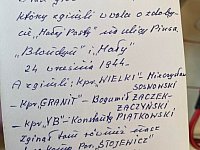 którzy zginęli w walce o zdoby-
cie „Małej Pasty" na ulicy Piusa
„Blondyn" i „Mały"
24 września 1944.
A zginęli; kpr. „WIELKI" Mieczysław
SOSNOWSKI
- Kpr. „GRANIT" - Bogumił ZACZEK-
ZACZYŃSKI-
- Kpr. „YB" - Konstanty PIĄTKOWSKI
Zginął tam również nasz
por. „STOJENICZ"